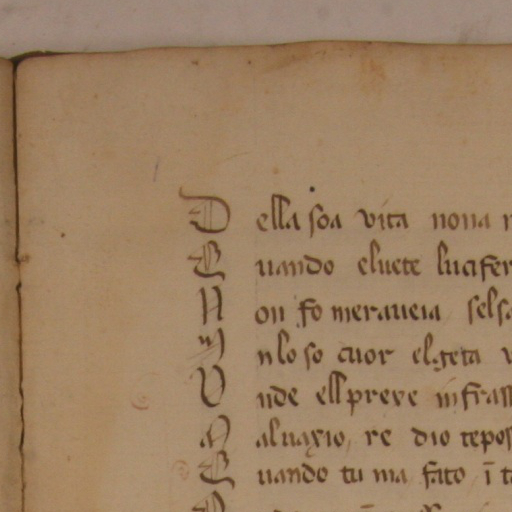 Della soa vita nona
Quando eluete lucifer
Non fo meraueia selsa
In lo so cuor elgeta
Unde ellpreye infrass
Maluaxio re dio tepos
Quando tu ma fato ī